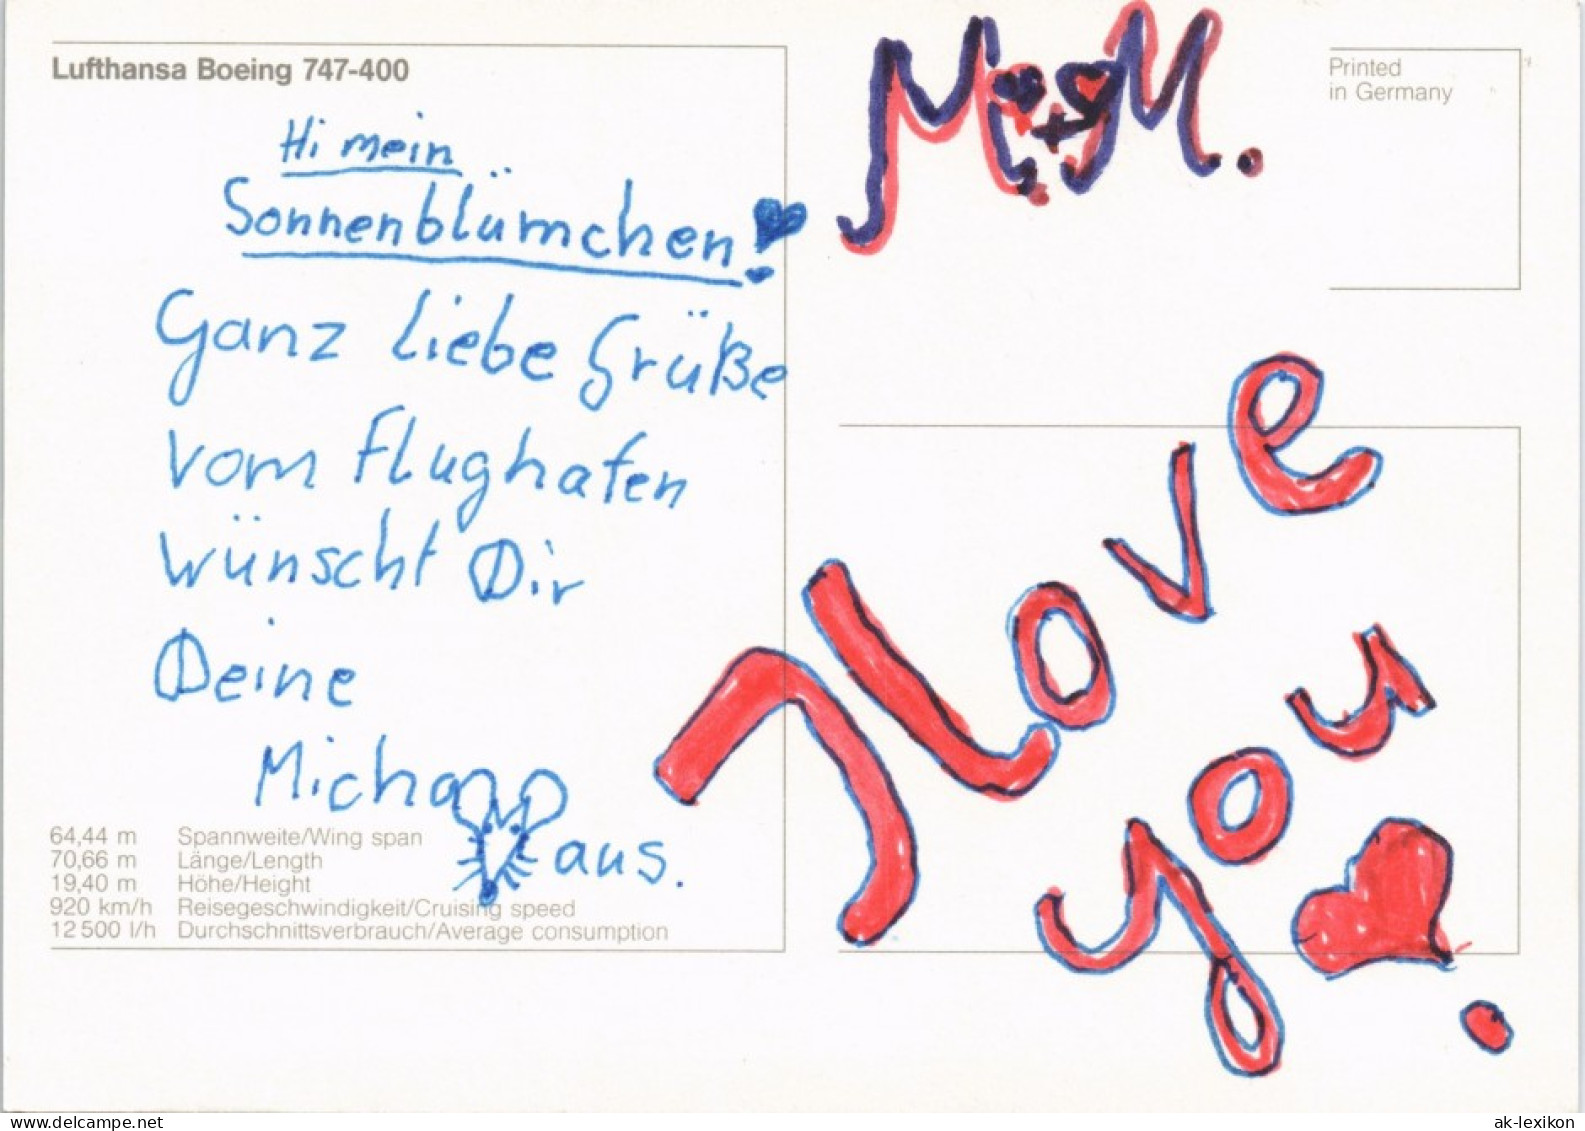 Lufthansa Boeing 747-400
Hi mein
Sonnenblümchen!
Ganz liebe Grüße
vom Flughafen
wünscht Dir
Deine
Micha
Maus.
64,44 m Spannweite/Wing span
70,66 m Länge/Length
19,40 m Höhe/Height
920 km/h Reisegeschwindigkeit/Cruising speed
12 500 l/h Durchschnittsverbrauch/Average consumption
M.+M.
Printed
in Germany
I love
you!
www.delcampe.net
ak-lexikon